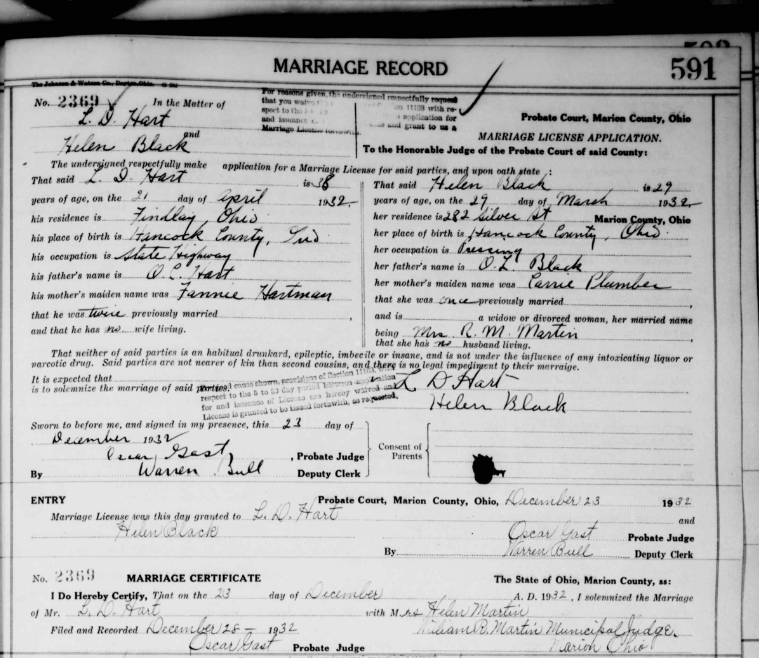 MARRIAGE RECORD 591
The Johnson & Watson Co., Dayton, Ohio
No. 2369 In the Matter of
L. D. Hart
and
Helen Black
For reasons given, the undersigned respectfully request
that you waive
spect to the
and issuance
Marriage License forthwith.
11183 with re-
application for
and grant to us a
Probate Court, Marion County, Ohio
MARRIAGE LICENSE APPLICATION.
To the Honorable Judge of the Probate Court of said County:
The undersigned respectfully make application for a Marriage License for said parties, and upon oath state:
That said L. D. Hart is 38
years of age, on the 21 day of April 1932
his residence is Findlay Ohio
his place of birth is Hancock County, Ind
his occupation is State Highway
his father's name is O. L. Hart
his mother's maiden name was Fannie Hartman
that he was twice previously married
and that he has no wife living.
That said Helen Black is 29
years of age, on the 29 day of March 1932
her residence is 282 Silver St Marion County, Ohio
her place of birth is Hancock County, Ohio
her occupation is Pressing
her father's name is O. L. Black
her mother's maiden name was Carrie Plumber
that she was once previously married
and is a widow or divorced woman, her married name
being Mrs R. M. Martin
that she has no husband living.
That neither of said parties is an habitual drunkard, epileptic, imbecile or insane, and is not under the influence of any intoxicating liquor or
narcotic drug. Said parties are not nearer of kin than second cousins, and there is no legal impediment to their marriage.
It is expected that
is to solemnize the marriage of said parties.
cause shown, provisions of Section 11183 with
respect to the 5 to 23 day period between application
for and issuance of License are hereby waived and
License is granted to be issued forthwith, as requested.
L D Hart
Helen Black
Sworn to before me, and signed in my presence, this 23 day of
December 1932
Oscar Gast, Probate Judge
By Warren Bull Deputy Clerk
Consent of
Parents
ENTRY Probate Court, Marion County, Ohio, December 23 1932
Marriage License was this day granted to L. D. Hart and
Helen Black
Oscar Gast Probate Judge
By Warren Bull Deputy Clerk
No. 2369 MARRIAGE CERTIFICATE The State of Ohio, Marion County, ss:
I Do Hereby Certify, That on the 23 day of December A. D. 1932, I solemnized the Marriage
of Mr. L. D. Hart with Mrs Helen Martin
Filed and Recorded December 28 - 1932 William R. Martin Municipal Judge
Oscar Gast Probate Judge Marion Ohio